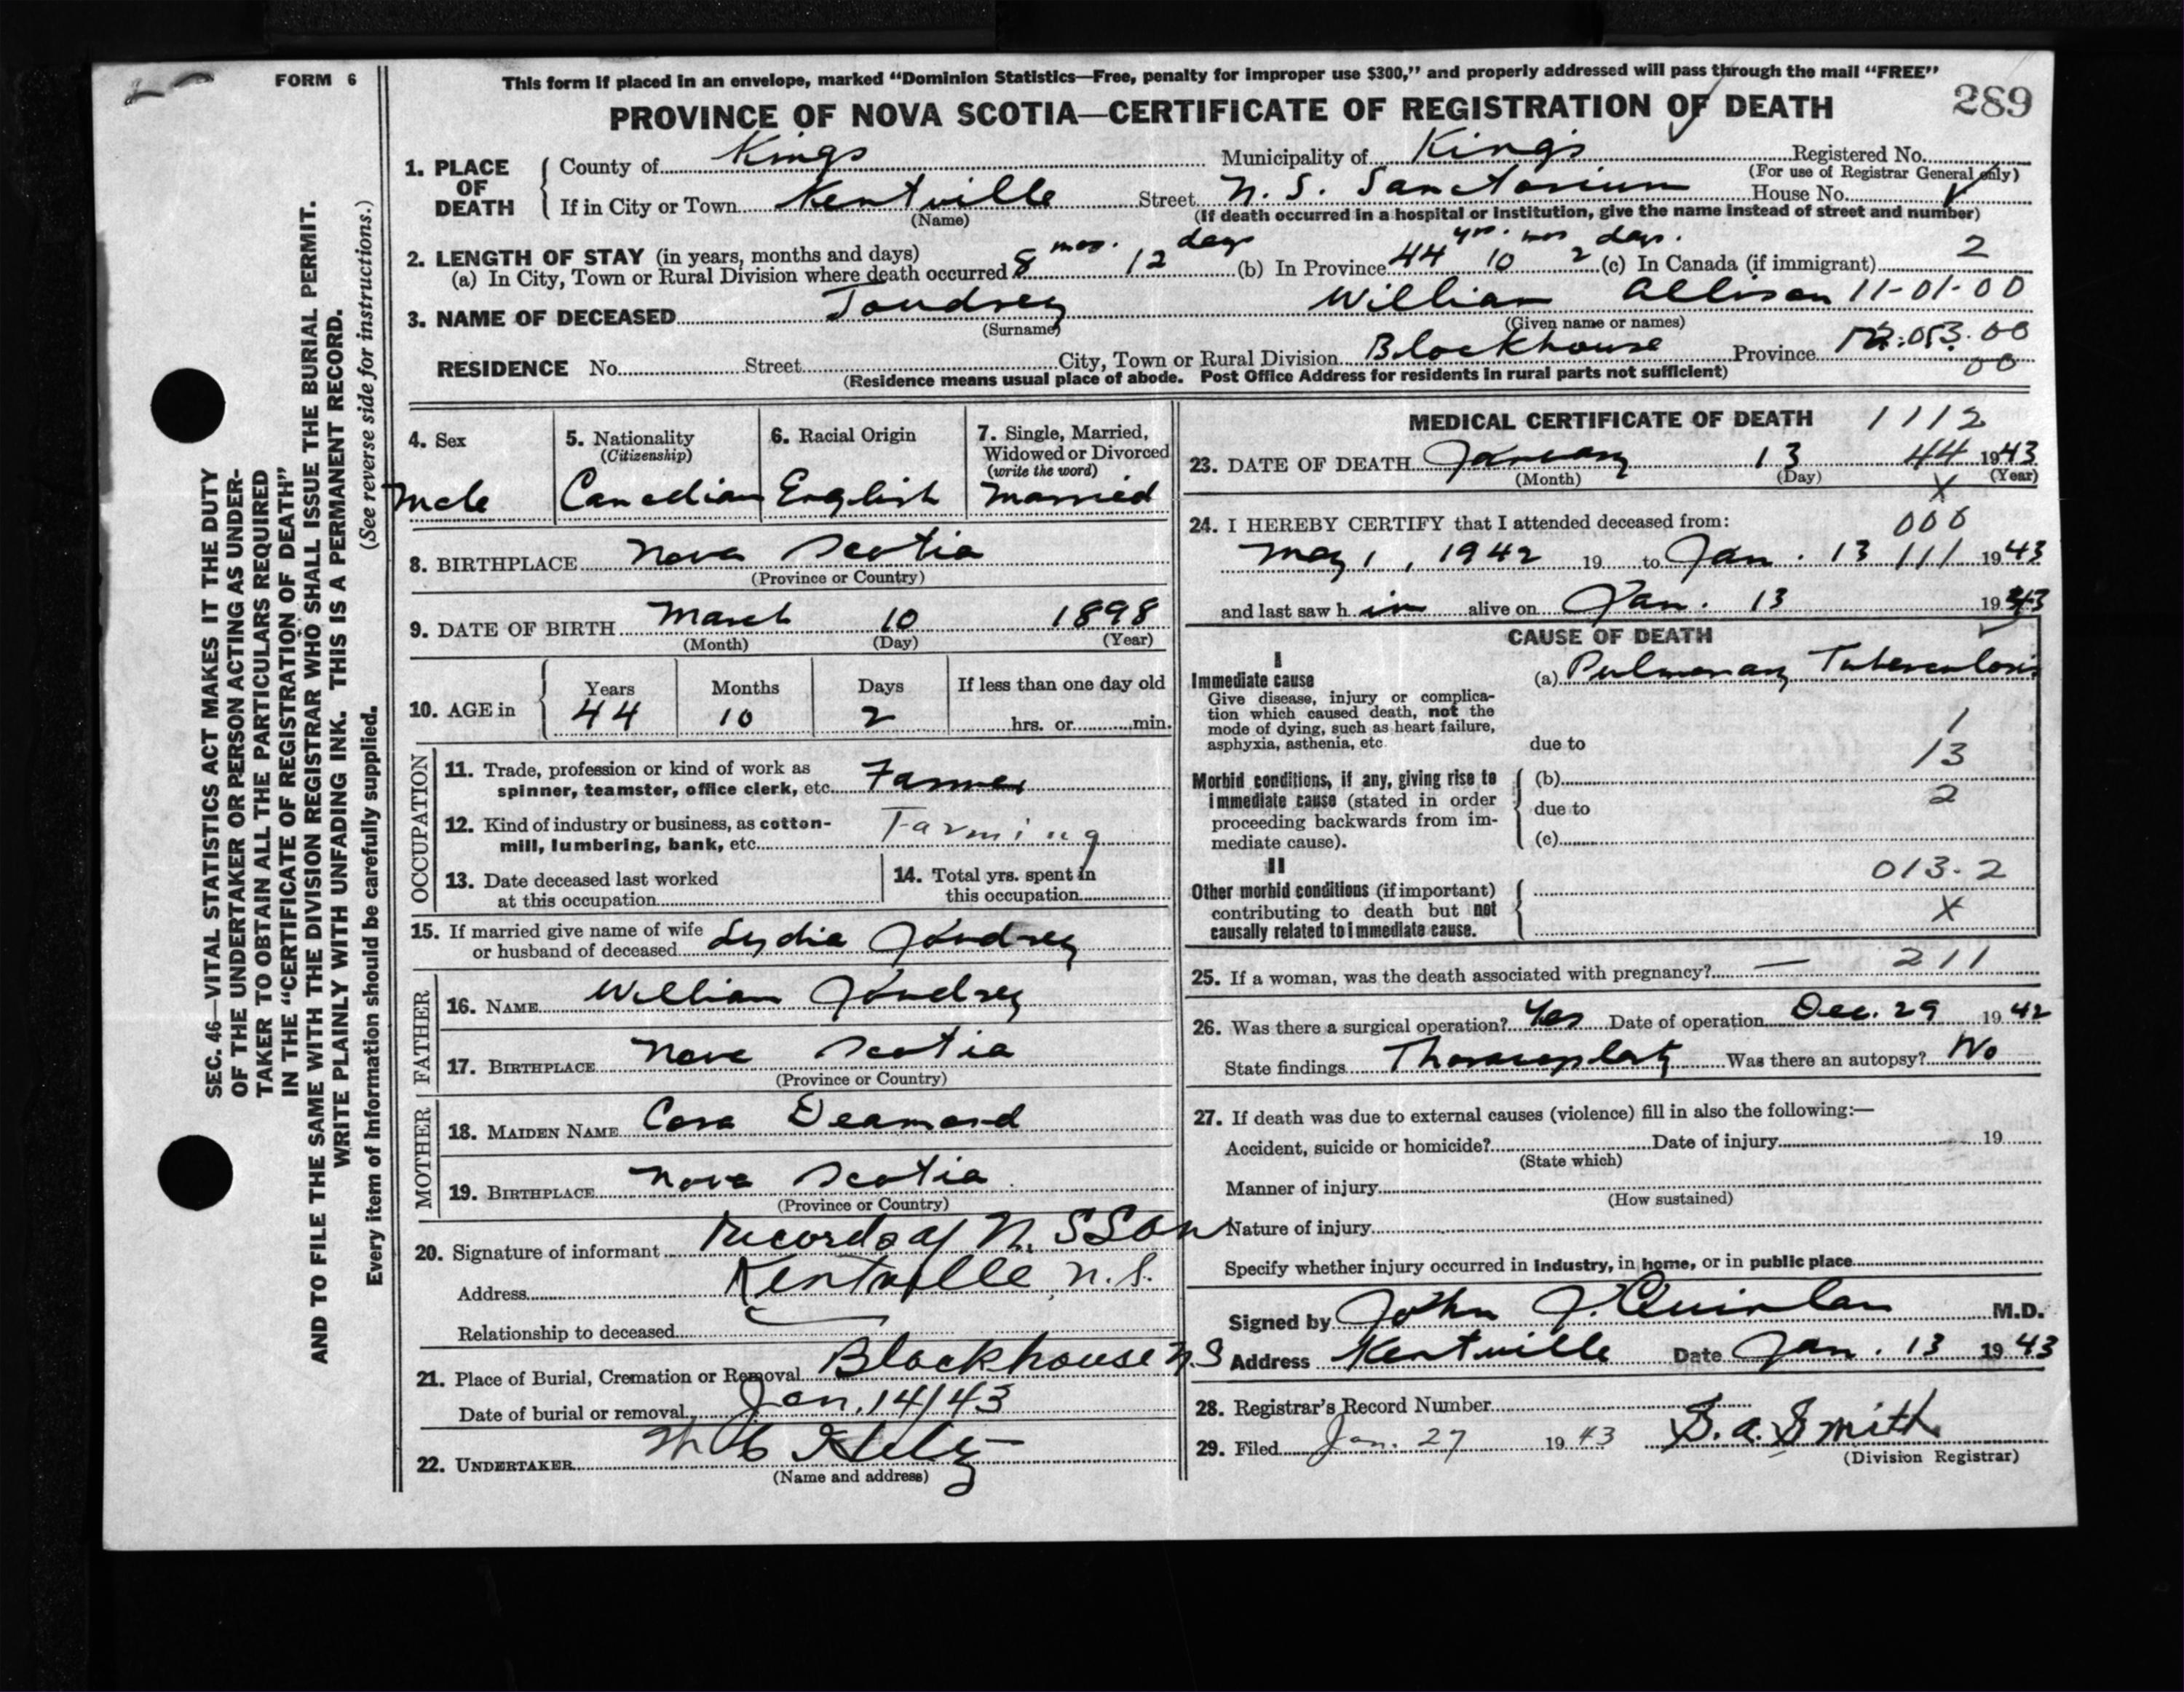 FORM 6
This form if placed in an envelope, marked “Dominion Statistics—Free, penalty for improper use $300,” and properly addressed will pass through the mail “FREE”
289
PROVINCE OF NOVA SCOTIA—CERTIFICATE OF REGISTRATION OF DEATH
SEC. 46—VITAL STATISTICS ACT MAKES IT THE DUTY
OF THE UNDERTAKER OR PERSON ACTING AS UNDER-
TAKER TO OBTAIN ALL THE PARTICULARS REQUIRED
IN THE “CERTIFICATE OF REGISTRATION OF DEATH”
AND TO FILE THE SAME WITH THE DIVISION REGISTRAR WHO SHALL ISSUE THE BURIAL PERMIT.
WRITE PLAINLY WITH UNFADING INK. THIS IS A PERMANENT RECORD.
Every item of information should be carefully supplied. (See reverse side for instructions.)
1. PLACE OF DEATH County of Kings Municipality of Kings Registered No.
(For use of Registrar General only)
If in City or Town Kentville Street N. S. Sanctorium House No.
(Name) (If death occurred in a hospital or institution, give the name instead of street and number)
2. LENGTH OF STAY (in years, months and days)
(a) In City, Town or Rural Division where death occurred 8 mos. 12 days (b) In Province 44 yrs. 10 mos 2 days. (c) In Canada (if immigrant) 2
3. NAME OF DECEASED Joudrey William Allison 11-01-00
(Surname) (Given name or names)
RESIDENCE No. Street City, Town or Rural Division Blockhouse Province .053.00
00
(Residence means usual place of abode. Post Office Address for residents in rural parts not sufficient)
4. Sex
Male
5. Nationality
(Citizenship)
Canadian
6. Racial Origin
English
7. Single, Married,
Widowed or Divorced
(write the word)
Married
8. BIRTHPLACE Nova Scotia
(Province or Country)
9. DATE OF BIRTH March 10 1898
(Month) (Day) (Year)
10. AGE in Years Months Days If less than one day old
44 10 2 hrs. or min.
OCCUPATION
11. Trade, profession or kind of work as
spinner, teamster, office clerk, etc. Farmer
12. Kind of industry or business, as cotton-
mill, lumbering, bank, etc. Farming
13. Date deceased last worked
at this occupation
14. Total yrs. spent in
this occupation
15. If married give name of wife
or husband of deceased Lydia Joudrey
FATHER
16. NAME William Joudrey
17. BIRTHPLACE Nova Scotia
(Province or Country)
MOTHER
18. MAIDEN NAME Cora Deamond
19. BIRTHPLACE Nova Scotia
(Province or Country)
20. Signature of informant records of N. S San
Address Kentville, N. S.
Relationship to deceased
21. Place of Burial, Cremation or Removal Blockhouse N S
Date of burial or removal Jan. 14/43
22. UNDERTAKER
(Name and address)
MEDICAL CERTIFICATE OF DEATH 1112
23. DATE OF DEATH January 13 44 1943
(Month) (Day) (Year)
X
24. I HEREBY CERTIFY that I attended deceased from: 000
May 1, 1942 19 to Jan. 13 111 1943
and last saw h im alive on Jan. 13 1943
CAUSE OF DEATH
I
Immediate cause
Give disease, injury or complica-
tion which caused death, not the
mode of dying, such as heart failure,
asphyxia, asthenia, etc.
(a) Pulmonary Tuberculosis
1
due to 13
Morbid conditions, if any, giving rise to
immediate cause (stated in order
proceeding backwards from im-
mediate cause).
(b)
2
due to
(c)
II
Other morbid conditions (if important)
contributing to death but not
causally related to immediate cause.
013.2
X
25. If a woman, was the death associated with pregnancy? — 211
26. Was there a surgical operation? Yes Date of operation Dec. 29 1942
State findings Thoracoplasty Was there an autopsy? No
27. If death was due to external causes (violence) fill in also the following:—
Accident, suicide or homicide? Date of injury 19
(State which)
Manner of injury
(How sustained)
Nature of injury
Specify whether injury occurred in industry, in home, or in public place
Signed by John J. Quinlan M.D.
Address Kentville Date Jan. 13 1943
28. Registrar's Record Number
29. Filed Jan. 27 1943 S. A. Smith
(Division Registrar)